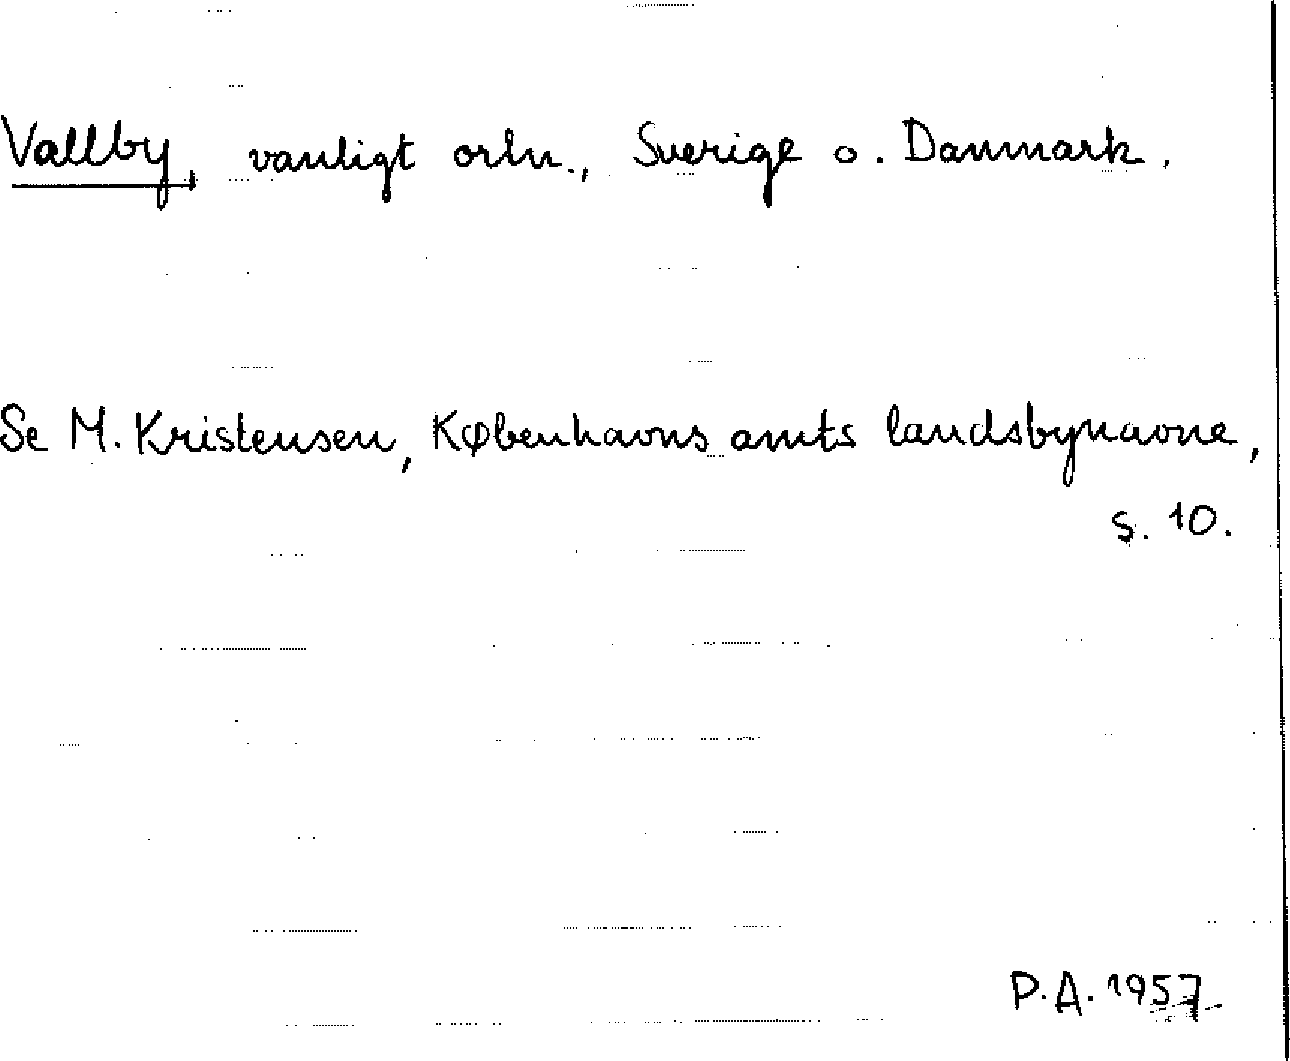 Vallby, vanligt ortn., Sverige o. Danmark.
Se M. Kristensen, Københavns amts landsbynavne,
s. 10.
P.A. 1957